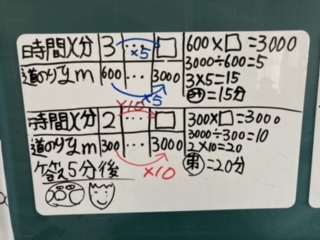 時間X分 3 … □
×5
道のりym 600 … 3000
×5
600×□=3000
3000÷600=5
3×5=15
=15分
×10
時間X分 2 … □
道のりym 300 … 3000
×10
300×□=3000
3000÷300=10
2×10=20
弟=20分
答え5分後